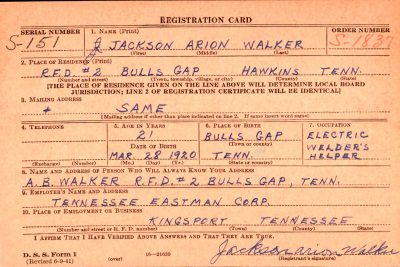 REGISTRATION CARD
SERIAL NUMBER
S-151
1. NAME (Print)
JACKSON ARION WALKER
(First) (Middle) (Last)
ORDER NUMBER
2. PLACE OF RESIDENCE (Print)
R.F.D. #2 BULLS GAP HAWKINS TENN.
(Number and street) (Town, township, village, or city) (County) (State)
[THE PLACE OF RESIDENCE GIVEN ON THE LINE ABOVE WILL DETERMINE LOCAL BOARD
JURISDICTION; LINE 2 OF REGISTRATION CERTIFICATE WILL BE IDENTICAL]
3. MAILING ADDRESS
SAME
[Mailing address if other than place indicated on line 2. If same insert word same]
4. TELEPHONE
5. AGE IN YEARS
21
6. PLACE OF BIRTH
BULLS GAP
(Town or county)
7. OCCUPATION
ELECTRIC
WELDER'S
HELPER
DATE OF BIRTH
MAR. 28 1920
TENN.
(Exchange) (Number)
(Mo.) (Day) (Yr.)
(State or country)
8. NAME AND ADDRESS OF PERSON WHO WILL ALWAYS KNOW YOUR ADDRESS
A. B. WALKER R.F.D. #2 BULLS GAP, TENN.
9. EMPLOYER'S NAME AND ADDRESS
TENNESSEE EASTMAN CORP.
10. PLACE OF EMPLOYMENT OR BUSINESS
KINGSPORT, TENNESSEE
(Number and street or R. F. D. number) (Town) (County) (State)
I AFFIRM THAT I HAVE VERIFIED ABOVE ANSWERS AND THAT THEY ARE TRUE.
Jackson Arion Walker
D. S. S. Form 1
(Revised 6-9-41)
(over)
16—21630
(Registrant's signature)